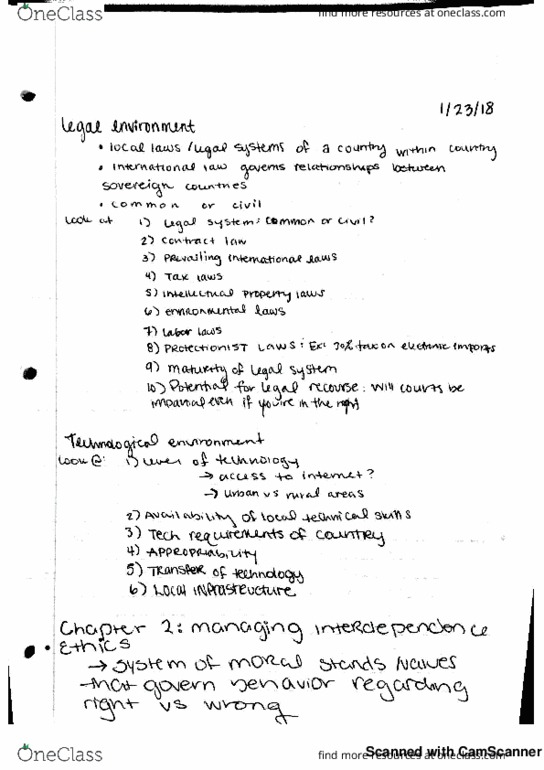 OneClass
find more resources at oneclass.com
1/23/18
Legal environment
• local laws / legal systems of a country within country
• international law governs relationships between
sovereign countries
• common or civil
Look at 1) Legal system: common or civil?
2) contract law
3) Prevailing international laws
4) Tax laws
5) intellectual property laws
6) environmental laws
7) labor laws
8) PROTECTIONIST LAWS: Ex: 30% tax on electronic imports
9) maturity of legal system
10) Potential for legal recourse: will courts be
impartial even if you're in the right
Technological environment
Look @: 1) level of technology
→ access to internet?
→ urban vs rural areas
2) Availability of local technical skills
3) Tech requirements of country
4) APPROPRIABILITY
5) Transfer of technology
6) Local infrastructure
Chapter 2: managing interdependence
• Ethics
→ system of moral stands/values
that govern behavior regarding
right vs wrong
OneClass
find more resources at oneclass.com
Scanned with CamScanner